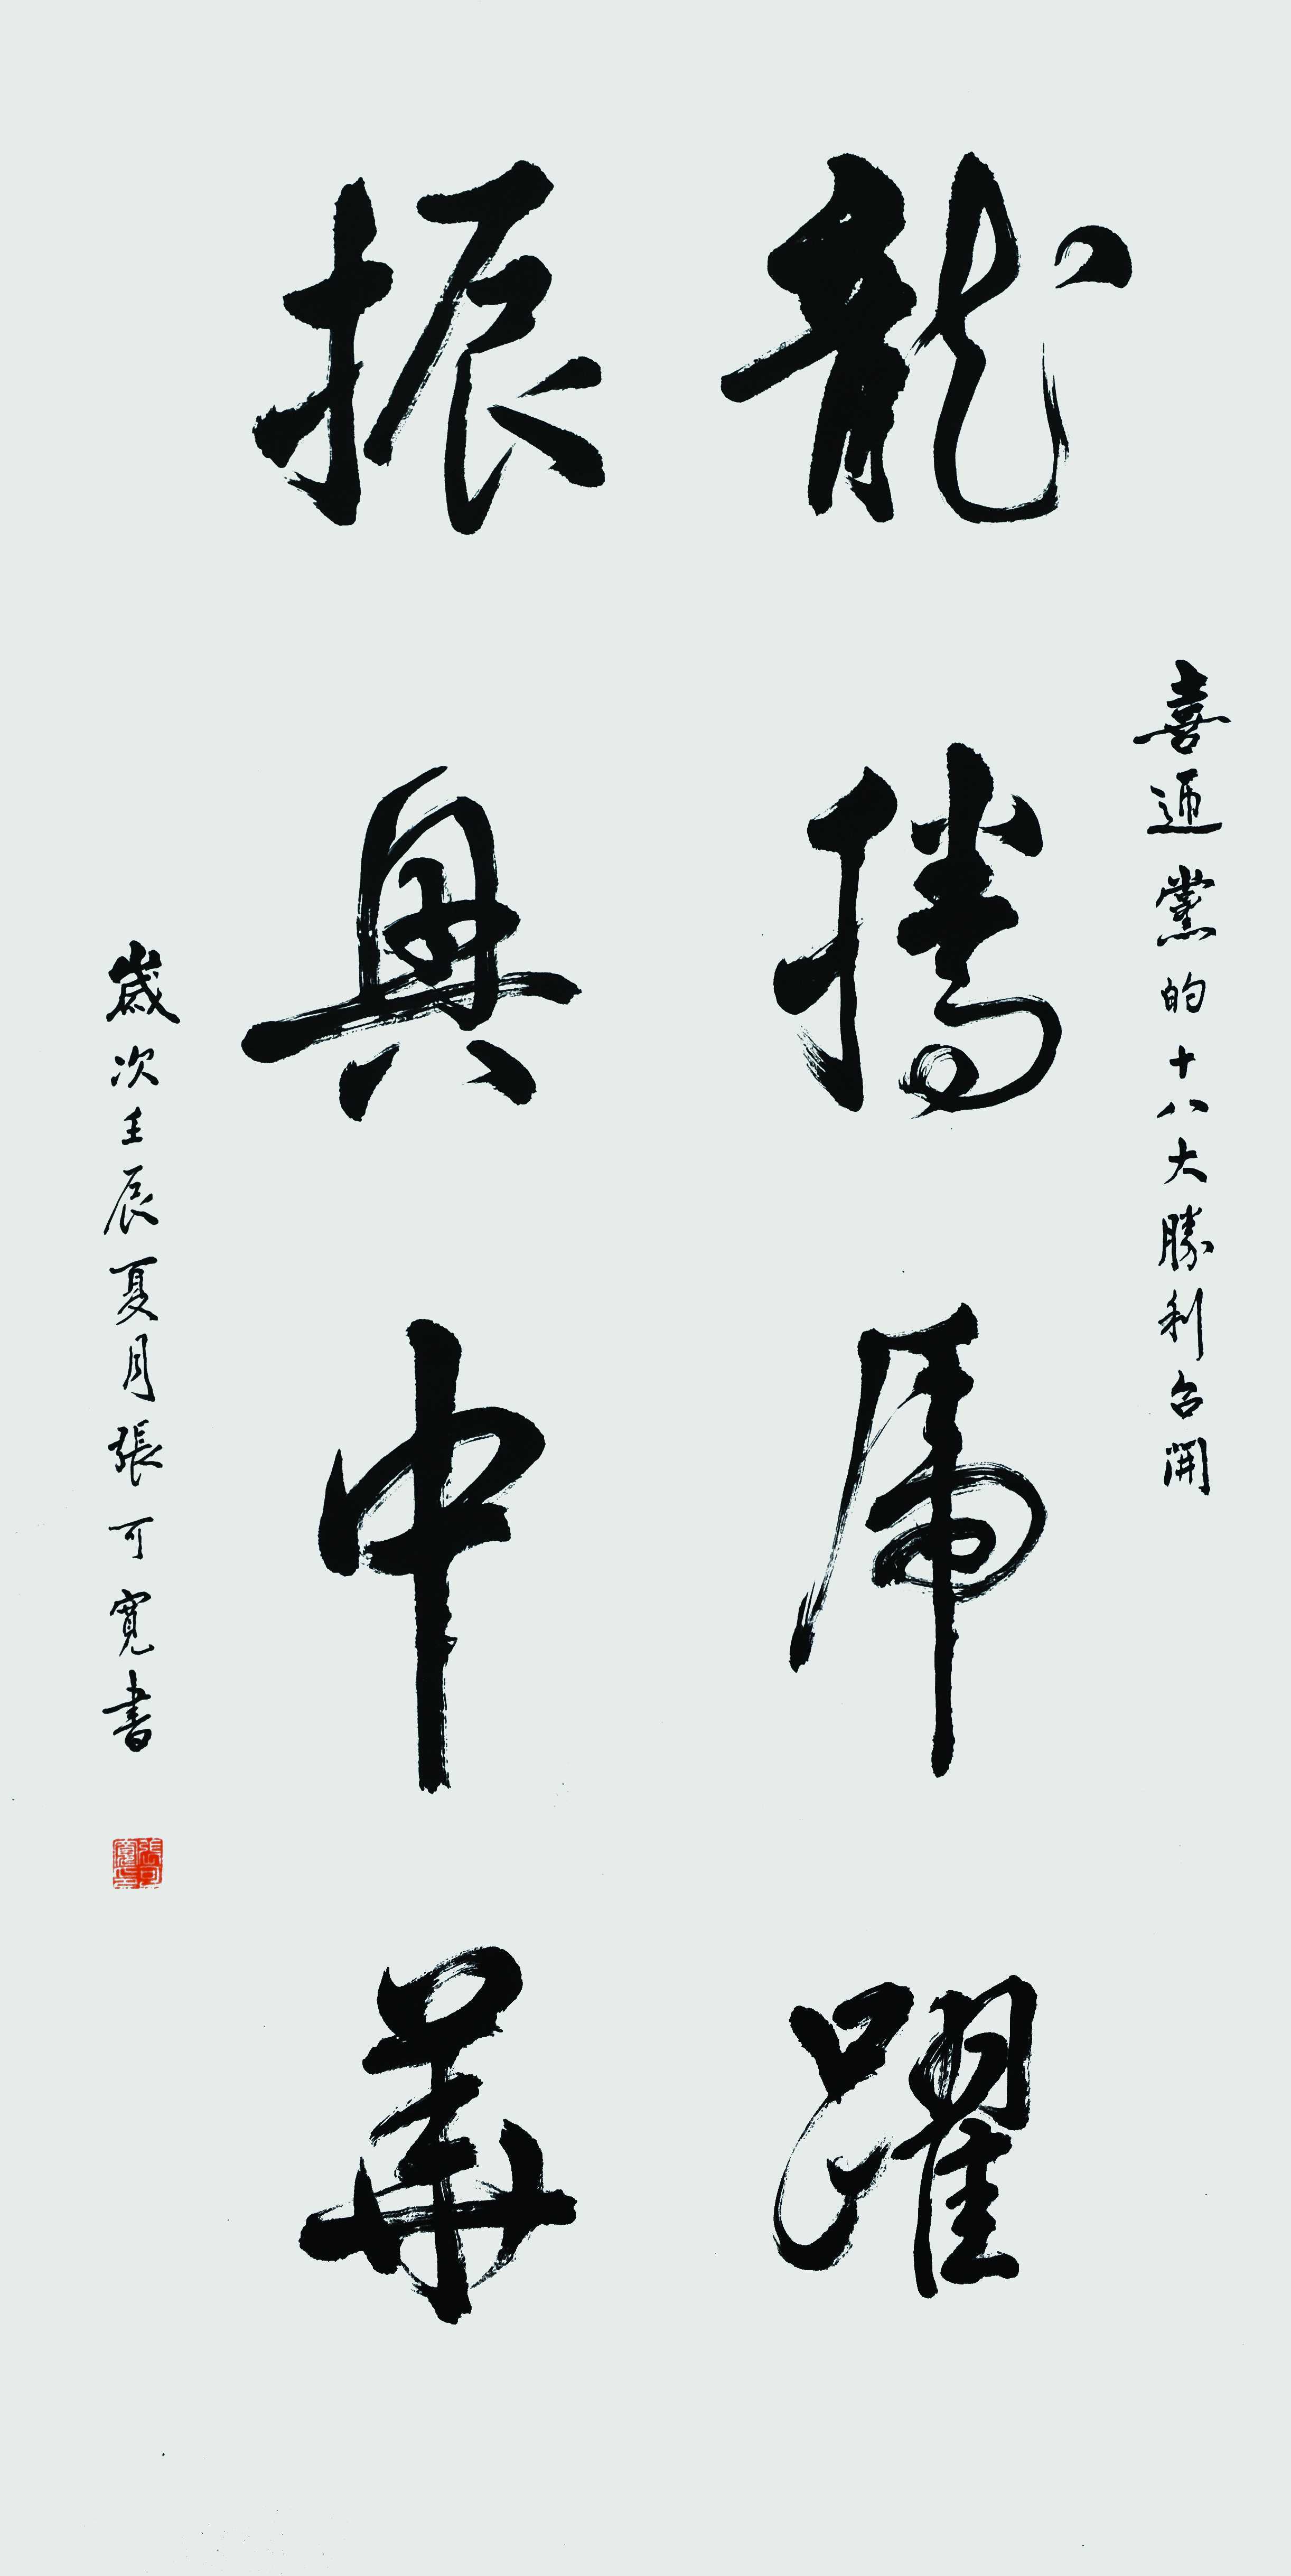 喜迎黨的十八大勝利召開
龍騰虎躍
振興中華
歲次壬辰夏月張可寬書